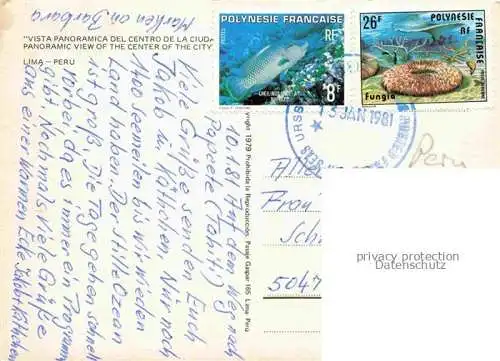 "VISTA PANORAMICA DEL CENTRO DE LA CIUDA
PANORAMIC VIEW OF THE CENTER OF THE CITY
LIMA - PERU
10.1.81 Auf dem Weg nach
Papeete (Tahiti)
Viele Grüße senden Euch
Jakob u. Käthchen. Nur noch
1400 seemeilen bis wir wieder
Land haben. Der Stille Ozean
ist groß. Die Tage gehen schnell
vorbei, da es immer ein Programm
gibt. Nochmals viele Grüße
aus einer warmen Ecke Jakob + Käthchen
POLYNESIE FRANÇAISE
RF
8F
POLYNESIE FRANÇAISE
26F
RF
Fungia
13 JAN 1981
URSS
Peru
yright 1979 Prohibida la Reproducción. Pasaje Gaspar 165 Lima Perú
Frau
Sch
5047
privacy protection
Datenschutz